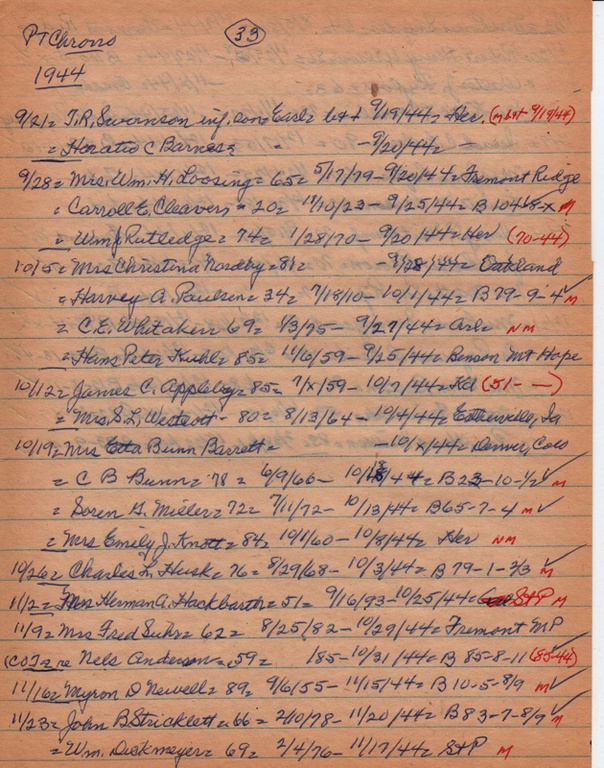 PT Chrono 33
1944
9/21= T.R. Swornson inf. son= Earl= b+d 9/19/44= Her. (m b+d - 9/19/44)
= Horatio C Barnes= - 9/20/44=
9/28= Mrs. Wm. H. Loosing= 65= 5/17/79 - 9/20/44= Fremont Ridge
= Carroll E. Cleaver= 20= 11/10/23 - 9/25/44= B 104-8-x M
= Wm J Rutledge= 74= 1/28/70 - 9/20/44= Her (70-44)
10/5= Mrs Christina Nordby= 81= - 9/28/44= Oakland
= Harvey A. Paulsen= 34= 7/18/10 - 10/1/44= B 79-9-4 M
= C.E. Whitaker= 69= 1/3/75 - 9/27/44= Arl= NM
= Hans Peter Kuhl= 85= 11/6/59 - 9/25/44= Benson Mt Hope
10/12= James C. Appleby= 85= 7/x/59 - 10/7/44= Kd (51- —)
= Mrs. S.L. Westcott - 80= 8/13/64 - 10/4/44= Estherville, Ia
10/19= Mrs Etta Bunn Barrett= - 10/x/44= Denver, Colo
= C B Bunn= 78= 6/9/66 - 10/13/44= B 23-10-1/2 M
= Soren G. Miller= 72= 7/11/72 - 10/13/44= B 65-7-4 M
= Mrs Emily J. Knott= 84= 10/1/60 - 10/8/44= Her NM
10/26= Charles L. Husk= 76= 8/29/68 - 10/3/44= B 79-1-2/3 M
11/2= Mrs Herman A. Hackbarth= 51= 9/16/93 - 10/25/44= St P M
11/9= Mrs Fred Suhr= 62= 8/25/82 - 10/29/44= Fremont MP
(COT= re Nels Anderson=, 59= 185 - 10/31/44= B 85-8-11 (85-44)
11/16= Myron D Newell= 89= 9/6/55 - 11/15/44= B 10-5-8/9 M
11/23= John B Stricklett= 66= 2/10/78 - 11/20/44= B 83-7-8/9 M
= Wm. Dickmeyer= 69= 2/4/76 - 11/17/44= St P M